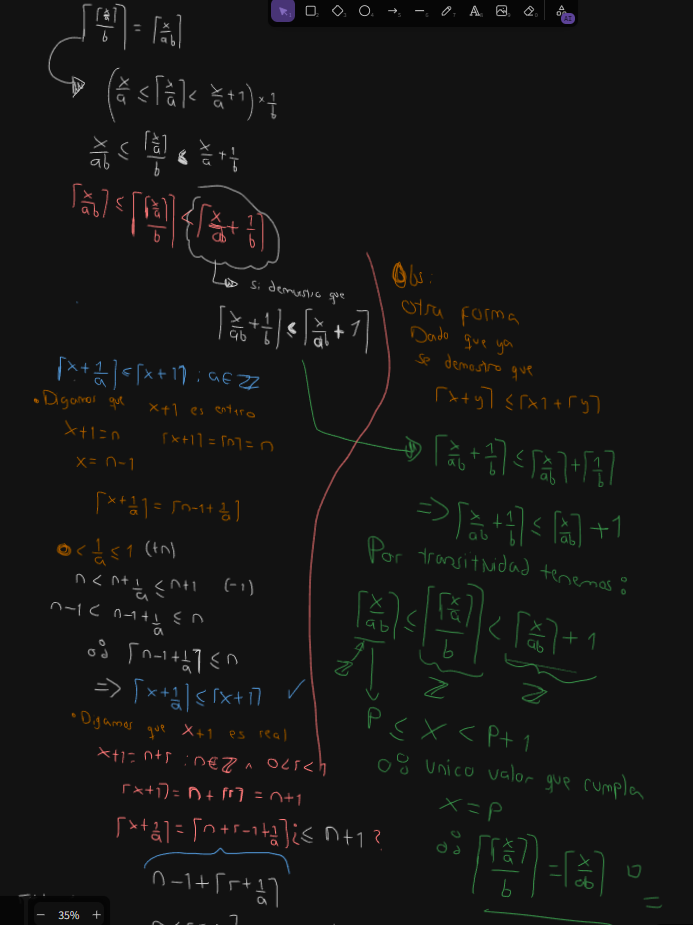 ⌈⌈x/a⌉/b⌉ = ⌈x/ab⌉
(x/a ≤ ⌈x/a⌉ < x/a + 1) × 1/b
x/ab ≤ ⌈x/a⌉/b < x/a + 1/b
⌈x/ab⌉ ≤ ⌈⌈x/a⌉/b⌉ < ⌈x/ab + 1/b⌉
si demuestro que
⌈x/ab + 1/b⌉ ≤ ⌈x/ab + 1⌉
⌈x + 1/a⌉ ≤ ⌈x+1⌉ ; a ∈ ℤ
• Digamos que x+1 es entero
x+1 = n ⌈x+1⌉ = ⌈n⌉ = n
x = n-1
⌈x + 1/a⌉ = ⌈n-1 + 1/a⌉
0 < 1/a ≤ 1 (+n)
n < n + 1/a ≤ n+1 (-1)
n-1 < n-1 + 1/a ≤ n
∴ ⌈n-1 + 1/a⌉ ≤ n
=> ⌈x + 1/a⌉ ≤ ⌈x+1⌉ ✓
• Digamos que x+1 es real
x+1 = n+r : n ∈ ℤ ∧ 0<r<1
⌈x+1⌉ = n + ⌈r⌉ = n+1
⌈x + 1/a⌉ = ⌈n+r-1+1/a⌉ ¿≤ n+1?
n-1 + ⌈r + 1/a⌉
Obs:
otra forma
Dado que ya
se demostro que
⌈x+y⌉ ≤ ⌈x⌉ + ⌈y⌉
⌈x/ab + 1/b⌉ ≤ ⌈x/ab⌉ + ⌈1/b⌉
=> ⌈x/ab + 1/b⌉ ≤ ⌈x/ab⌉ + 1
Por transitividad tenemos:
⌈x/ab⌉ ≤ ⌈⌈x/a⌉/b⌉ < ⌈x/ab⌉ + 1
ℤ ℤ ℤ
P ≤ X < P+1
∴ Unico valor que cumpla
X = P
∴ ⌈⌈x/a⌉/b⌉ = ⌈x/ab⌉
− 35% +
AI